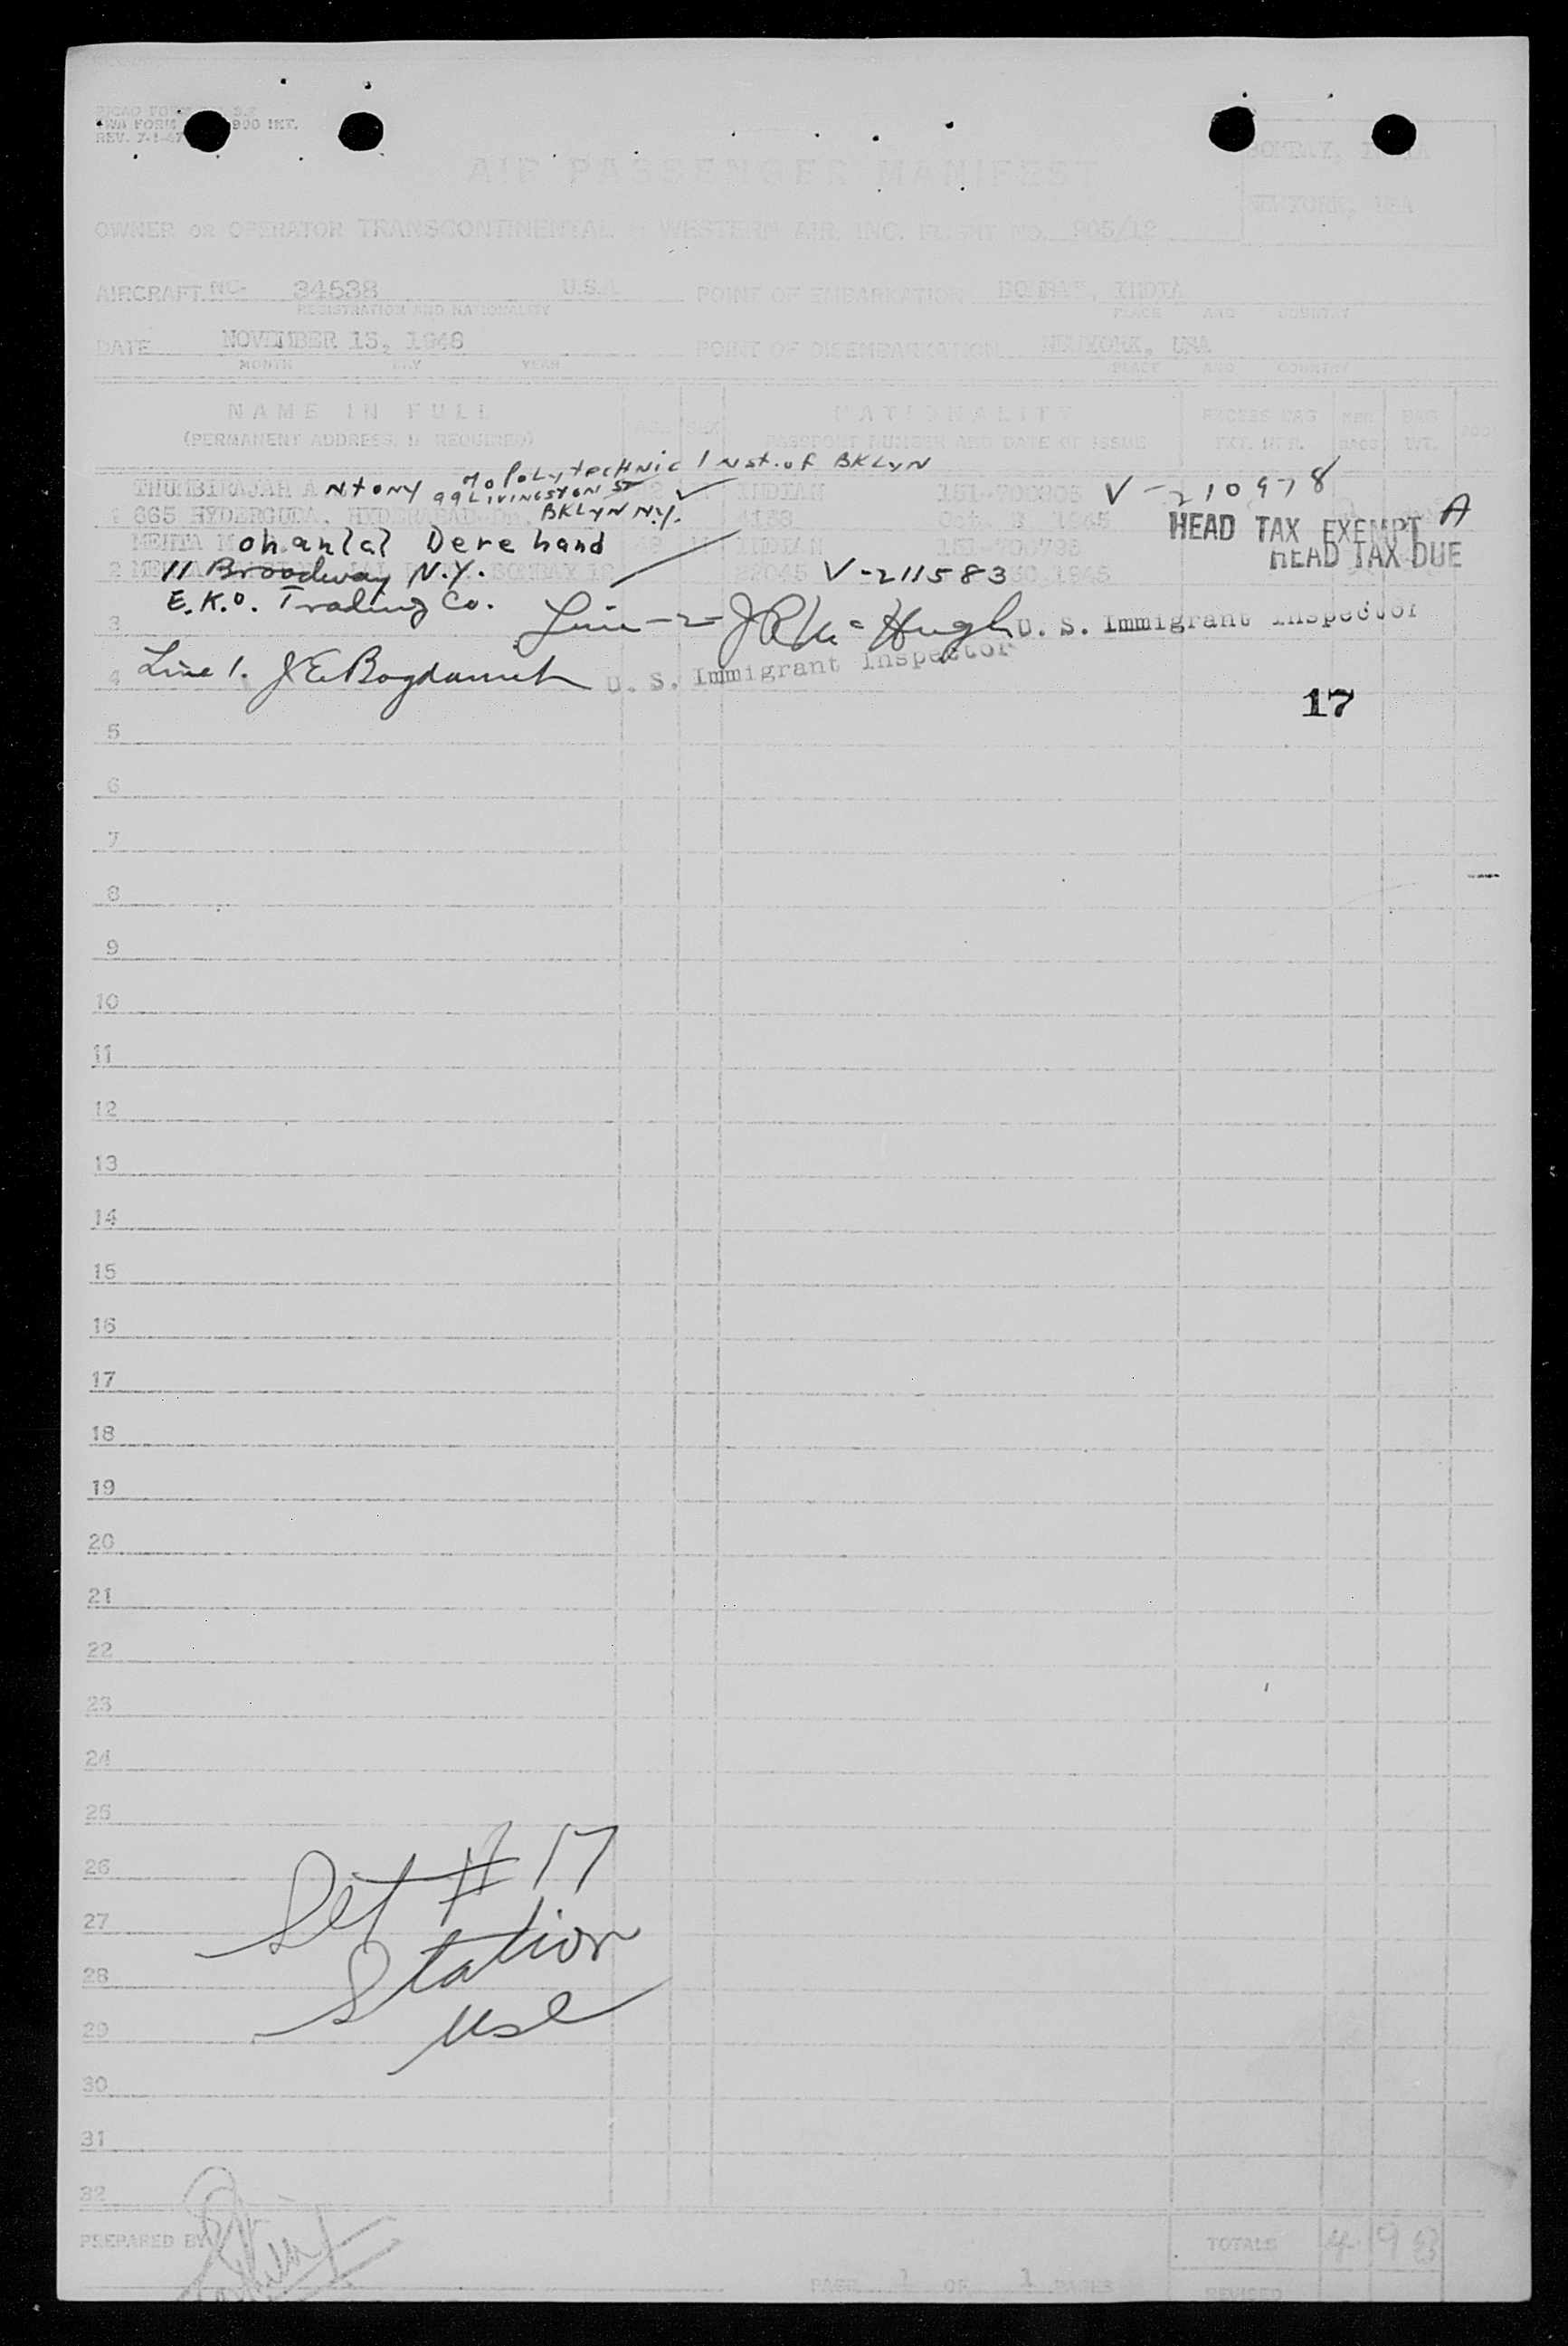 REV. 7-1-47
AIR PASSENGER MANIFEST
BOMBAY, INDIA
NEWYORK, USA
OWNER OR OPERATOR TRANSCONTINENTAL & WESTERN AIR, INC. FLIGHT NO. 905/12
AIRCRAFT NC- 34538 U.S.A
REGISTRATION AND NATIONALITY
POINT OF EMBARKATION BOMBAY, INDIA
PLACE AND COUNTRY
DATE NOVEMBER 15, 1948
MONTH DAY YEAR
POINT OF DISEMBARKATION NEWYORK, USA
PLACE AND COUNTRY
NAME IN FULL
(PERMANENT ADDRESS, IF REQUIRED)
AGE SEX
NATIONALITY
PASSPORT NUMBER AND DATE OF ISSUE
EXCESS BAG
BAGS
BAG WT.
% Polytechnic Inst. of BKLYN
THUMBIRAJAH A ntony 99 LIVINGSTON ST INDIAN V-210978
1 665 HYDERGUDA, HYDERABAD BKLYN N.Y.
HEAD TAX EXEMPT A
MEHTA M ohanlal Derehand INDIAN
HEAD TAX DUE
2 11 Broadway N.Y. BOMBAY V-211583
E.K.O. Trading Co.
3 Line-2- J R McHugh U. S. Immigrant Inspector
4 Line 1. J E U. S. Immigrant Inspector
17
5
6
7
8
9
10
11
12
13
14
15
16
17
18
19
20
21
22
23
24
25
26
27
28
29
30
31
32
Set # 17
Station
use
PREPARED BY
TOTALS
PAGE 1 OF 1 PAGES
REVISED